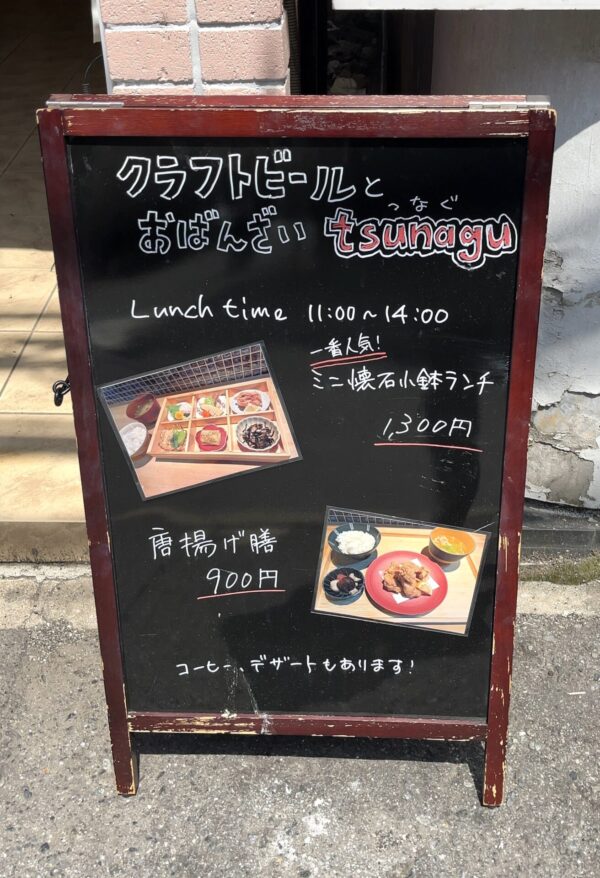 クラフトビールと
つなぐ
おばんざい tsunagu
Lunch time 11:00～14:00
一番人気!
ミニ懐石小鉢ランチ
1,300円
唐揚げ膳
900円
コーヒー、デザートもあります!